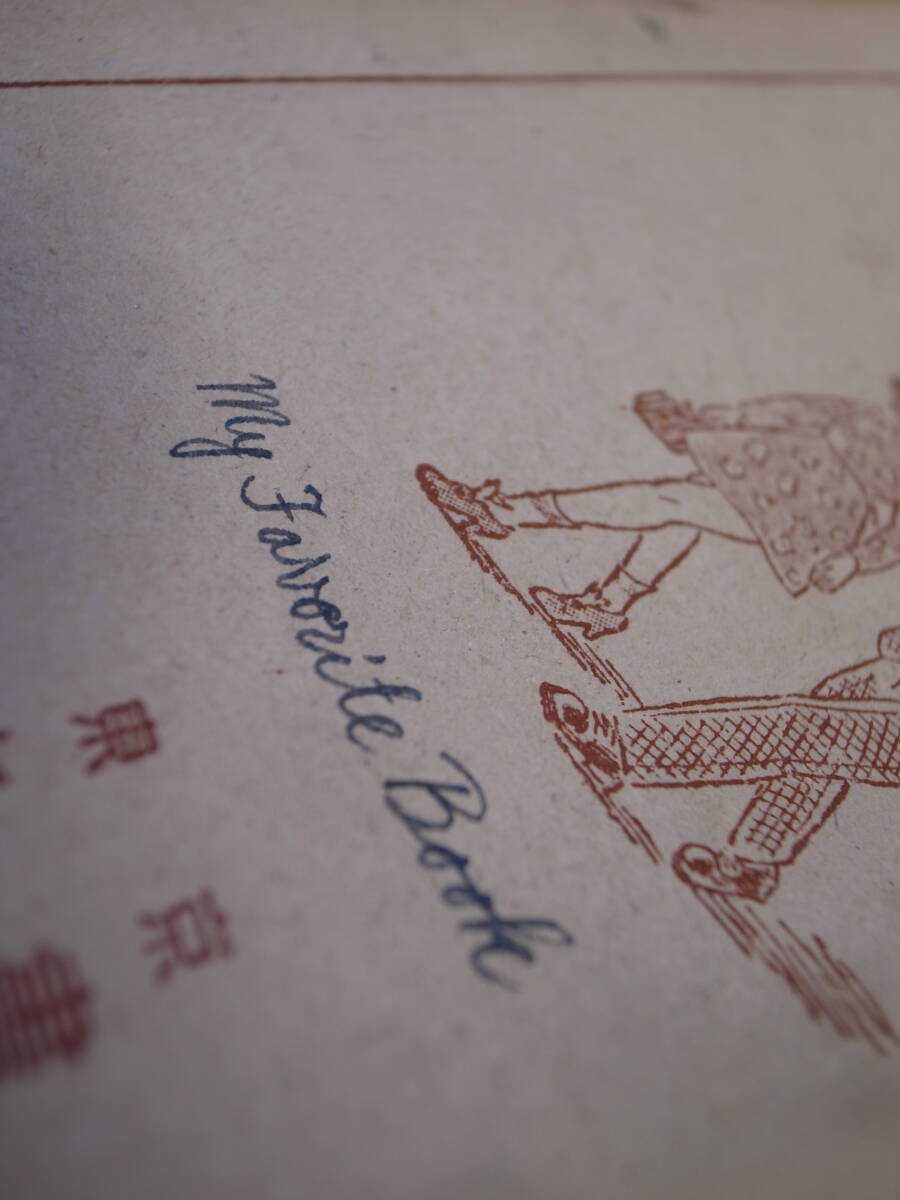 My Favorite Book
東京
書